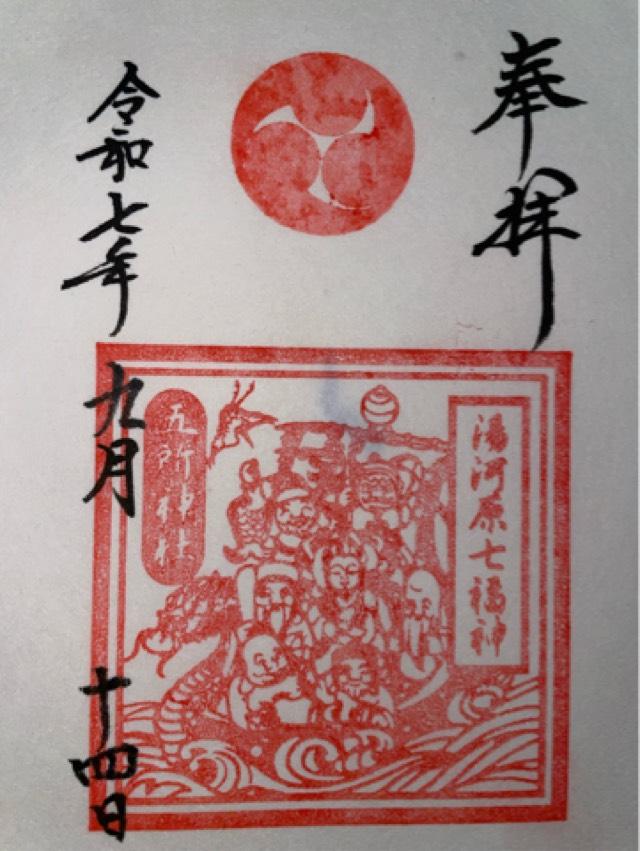 奉拝
湯河原七福神
五所神社
令和七年九月十四日